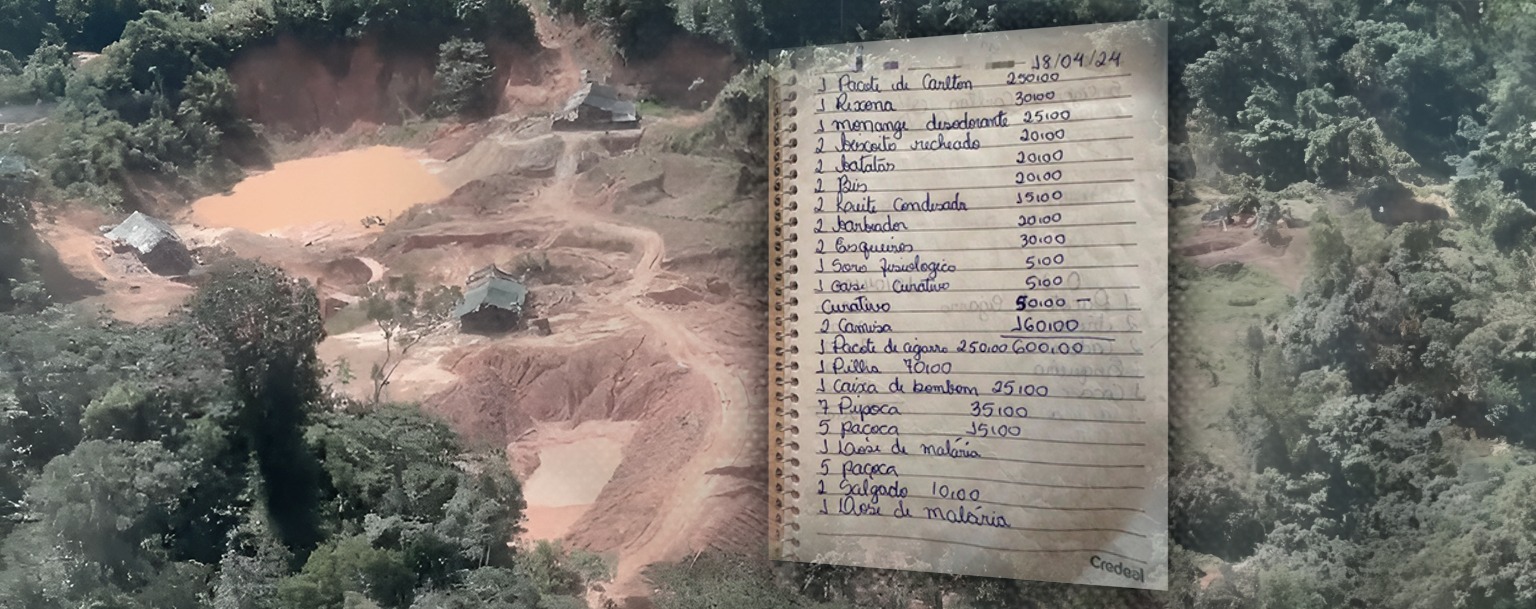 18/04/24
1 Pacote de Carlton 250,00
1 Rexona 30,00
1 monange desodorante 25,00
2 biscoito recheado 20,00
2 batatas 20,00
2 Bis 20,00
2 Leite Condesado 15,00
2 barbeador 20,00
2 Esqueiros 30,00
1 Soro fisiologico 5,00
1 case curativo 5,00
Curativo 50,00 -
2 Camisa 160,00
1 Pacote de cigarro 250,00 600,00
1 Pilha 70,00
1 Caixa de bombom 25,00
7 Pipoca 35,00
5 paçoca 15,00
1 Dose de malária
5 paçoca
2 Salgado 10,00
1 Dose de malária
Credeal